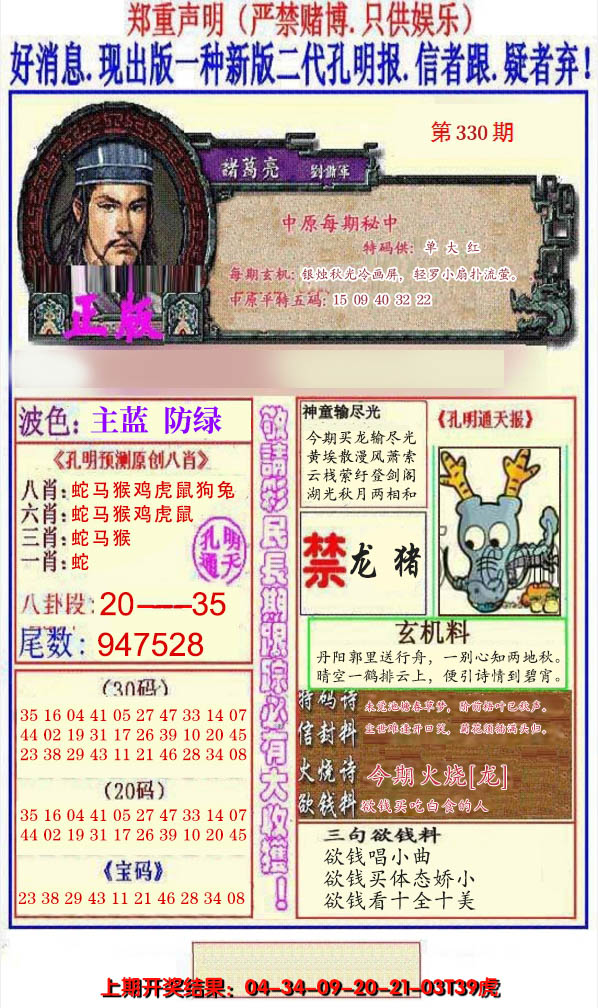 郑重声明（严禁赌博.只供娱乐）
好消息.现出版一种新版二代孔明报.信者跟.疑者弃!
第330期
諸葛亮
劉備軍
中原每期秘中
特码供：单大红
每期玄机：银烛秋光冷画屏，轻罗小扇扑流萤。
中原平特五码：15 09 40 32 22
正版
波色：主蓝 防绿
《孔明预测原创八肖》
八肖：蛇马猴鸡虎鼠狗兔
六肖：蛇马猴鸡虎鼠
三肖：蛇马猴
一肖：蛇
孔明
通天
八卦段：20----35
尾数：947528
（30码）
35 16 04 41 05 27 47 33 14 07
44 02 19 31 17 26 39 10 20 45
23 38 29 43 11 21 46 28 34 08
（20码）
35 16 04 41 05 27 47 33 14 07
44 02 19 31 17 26 39 10 20 45
《宝码》
23 38 29 43 11 21 46 28 34 08
敬請彩民長期跟踪必有大收獲！
神童输尽光
今期买龙输尽光
黄埃散漫风萧索
云栈萦纡登剑阁
湖光秋月两相和
《孔明通天报》
禁 龙 猪
玄机料
丹阳郭里送行舟，一别心知两地秋。
晴空一鹤排云上，便引诗情到碧宵。
特码诗
信封料
未觉池塘春草梦，阶前梧叶已秋声。
尘世难逢开口笑，菊花须插满头归。
火烧诗
今期火烧[龙]
欲钱料
欲钱买吃白食的人
三句欲钱料
欲钱唱小曲
欲钱买体态娇小
欲钱看十全十美
上期开奖结果：04-34-09-20-21-03T39虎